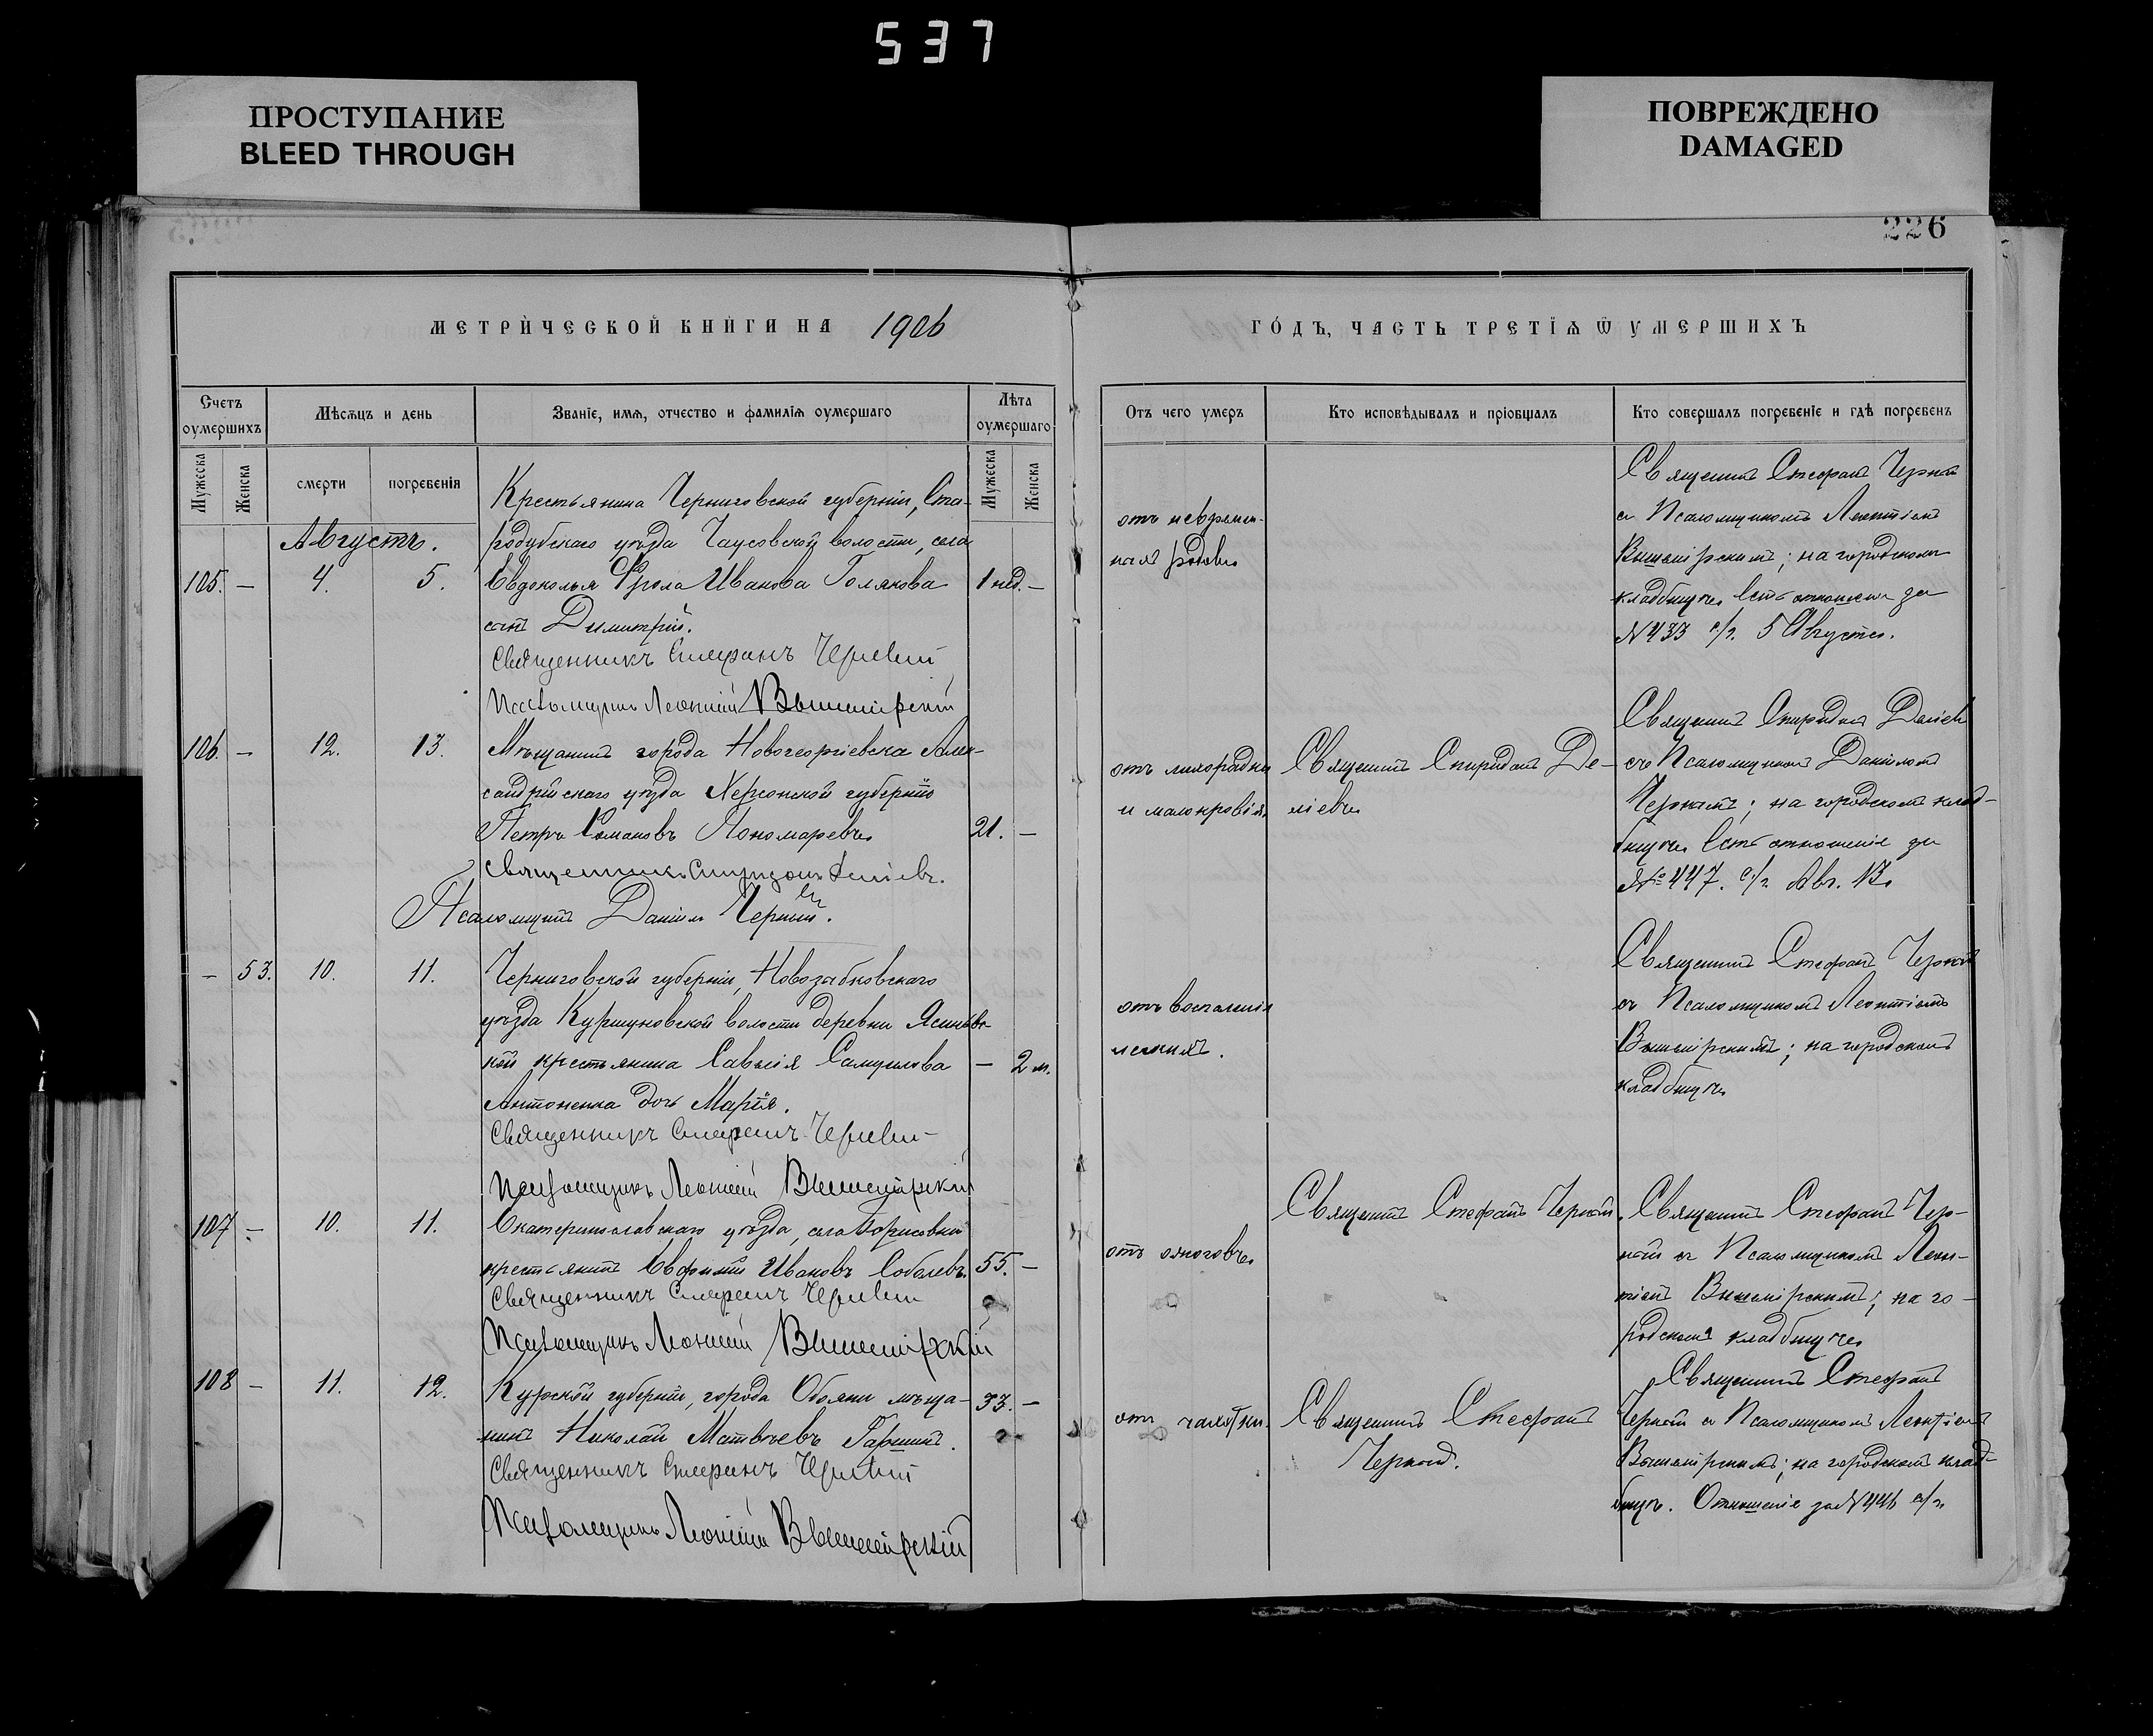 537
ПРОСТУПАНИЕ
BLEED THROUGH
ПОВРЕЖДЕНО
DAMAGED
226
МЕТРИ́ЧЕСКОЙ КНИ́ГИ НА 1906
ГО́ДЪ, ЧАСТЬ ТРЕТІѦ Ѿ УМЕРШИХЪ
Счетъ оумершихъ
Мѣсѧцъ и день
Званіе, имѧ, отчество и фамиліѧ оумершаго
Лѣта оумершаго
Отъ чего умеръ
Кто исповѣдывалъ и пріобщалъ
Кто совершалъ погребеніе и гдѣ погребенъ
Мужеска
Женска
смерти
погребенія
Мужеска
Женска
Августъ.
105. — 4. 5.
Крестьянина Черниговской губерніи, Ста-
родубскаго уѣзда Чаусовской волости, села
Фрола Иванова Голякова
сынъ Димитрій.
Священникъ Стефанъ
Псаломщикъ Леонтій Вышемірскій
1 нед. —
родовъ
Священникъ Стефанъ
съ Псаломщикомъ Леонтіемъ
Вышемірскимъ; на городскомъ
кладбищѣ. Есть отношеніе за
№ 433 с/г. 5 Августа.
106. — 12. 13.
Мѣщанинъ города Новогеоргіевска Алек-
сандрійскаго уѣзда Херсонской губерніи
Петръ Романовъ Пономаревъ
Священникъ Спиридонъ Деліевъ.
Псаломщикъ Даніилъ
21. —
отъ лихорадки
и малокровія.
Священникъ Спиридонъ Де-
ліевъ
Священникъ Спиридонъ Деліевъ
съ Псаломщикомъ Даніиломъ
на городскомъ клад-
бищѣ. Есть отношеніе за
№ 447. с/г. Авг. 13.
— 53. 10. 11.
Черниговской губерніи, Новозыбковскаго
уѣзда волости деревни
крестьянина Савелія Самуилова
Антоненка дочь Марія.
Священникъ Стефанъ
Псаломщикъ Леонтій Вышемірскій
— 2 м.
отъ воспаленія
легкихъ.
Священникъ Стефанъ
съ Псаломщикомъ Леонтіемъ
Вышемірскимъ; на городскомъ
кладбищѣ
107. — 10. 11.
Екатеринославскаго уѣзда, села Борисовки
крестьянинъ Евфимій Ивановъ Соболевъ
Священникъ Стефанъ
Псаломщикъ Леонтій Вышемірскій
55. —
отъ ожоговъ
Священникъ Стефанъ
Священникъ Стефанъ
съ Псаломщикомъ Леон-
тіемъ Вышемірскимъ; на го-
родскомъ кладбищѣ
108 — 11. 12.
Курской губерніи, города Обояни мѣща-
нинъ Николай Матвѣевъ Гаршинъ.
Священникъ Стефанъ
Псаломщикъ Леонтій Вышемірскій
33. —
отъ чахотки.
Священникъ Стефанъ
Священникъ Стефанъ
съ Псаломщикомъ Леонтіемъ
Вышемірскимъ; на городскомъ клад-
бищѣ. Отношеніе за № 446 с/г.